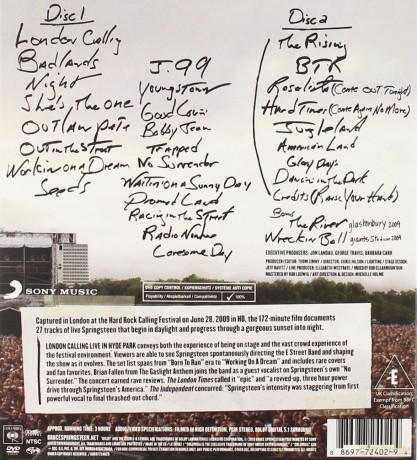 Disc 1
London Calling
Badlands
Night
She's The One
Outlaw Pete
Out in the Street
Workin on a Dream
Seeds
J. 99
Youngstown
Good Lovin
Bobby Jean
Trapped
No Surrender
Waitin on a Sunny Day
Promised Land
Racin in the Street
Radio Nowhere
Lonesome Day
Disc 2
The Rising
BTR
Rosalita (Come Out Tonight)
Hard Times (Come Again No More)
Jungleland
American Land
Glory Days
Dancin in the Dark
Credits (Raise Your Hand)
Bonus
The River glastonbury 2009
Wreckin Ball giants stadium 2009
EXECUTIVE PRODUCERS: JON LANDAU, GEORGE TRAVIS, BARBARA CARR
PRODUCER/EDITOR: THOM ZIMNY / DIRECTOR: CHRIS HILSON / LIGHTING / STAGE DESIGN:
SONY MUSIC
DVD COPY CONTROL / KOPIERSCHUTZ / SYSTÈME ANTI COPIE
Playability / Abspielbarkeit / Compatibilité
100%
Captured in London at the Hard Rock Calling Festival on June 28, 2009 in HD, the 172-minute film documents
27 tracks of live Springsteen that begin in daylight and progress through a gorgeous sunset into night.
LONDON CALLING LIVE IN HYDE PARK conveys both the experience of being on stage and the vast crowd experience
of the festival environment. Viewers are able to see Springsteen spontaneously directing the E Street Band and shaping
the show as it evolves. The set list spans from "Born To Run" era to "Working On A Dream" and includes rare covers
and fan favorites. Brian Fallon from The Gaslight Anthem joins the band as a guest vocalist on Springsteen's own "No
Surrender." The concert earned rave reviews. The London Times called it "epic" and "a revved-up, three hour power
drive through Springsteen's America." The Independent concurred: "Springsteen's intensity was staggering from first
powerful vocal to final thrashed-out chord."
E
UK Classification:
Exempt from BBFC
Classification
COLUMBIA
DVD
NTSC
APPROX. RUNNING TIME: 3 HOURS
BRUCESPRINGSTEEN.NET
8 8697-72402-9 4